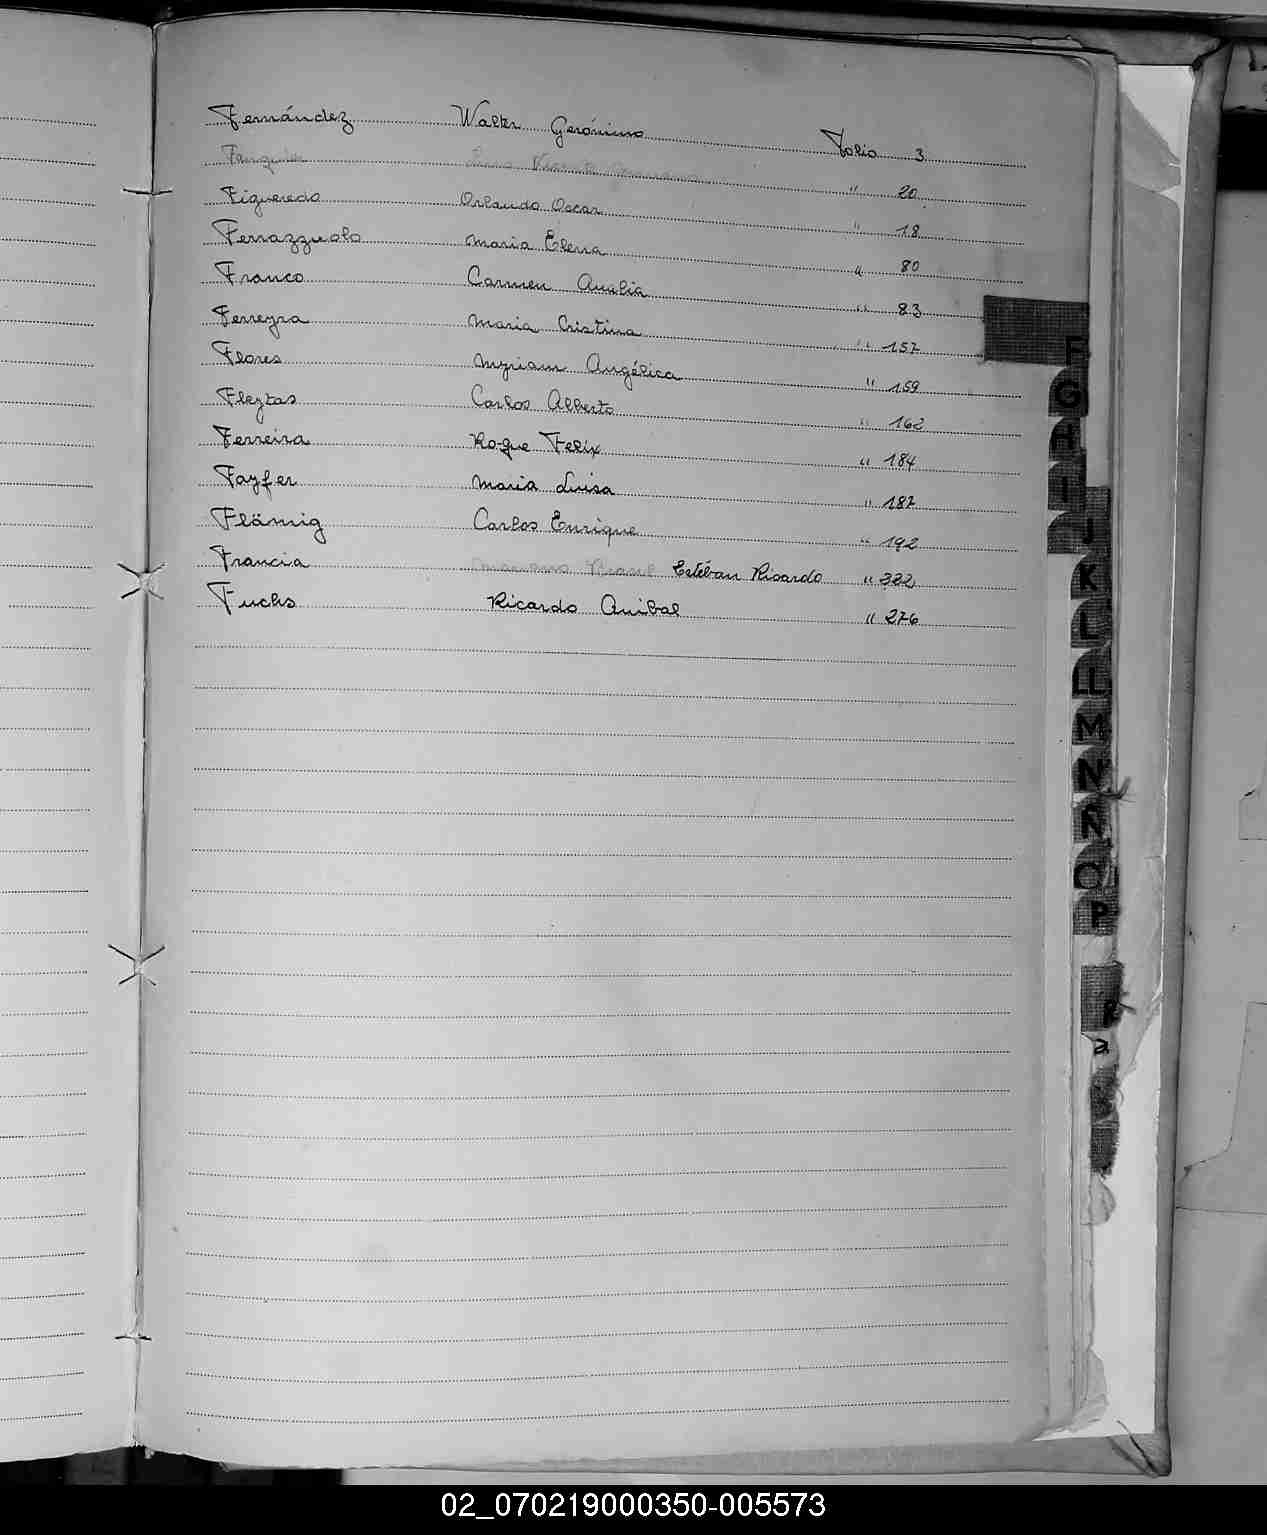 Fernández Walter Gerónimo Folio 3
" 20
Figueredo Orlando Oscar " 18
Ferrazzuolo Maria Elena " 80
Franco Carmen Analia " 83
Ferreyra Maria Cristina " 157
Flores Myriam Angélica " 159
Fleytas Carlos Alberto " 162
Ferreira Roque Felix " 184
Fayfer Maria Luisa " 187
Flämig Carlos Enrique " 192
Francia Estéban Ricardo " 332
Fuchs Ricardo Anibal " 276
F
G
H
I
J
K
L
M
N
Ñ
O
P
R
a
02_070219000350-005573